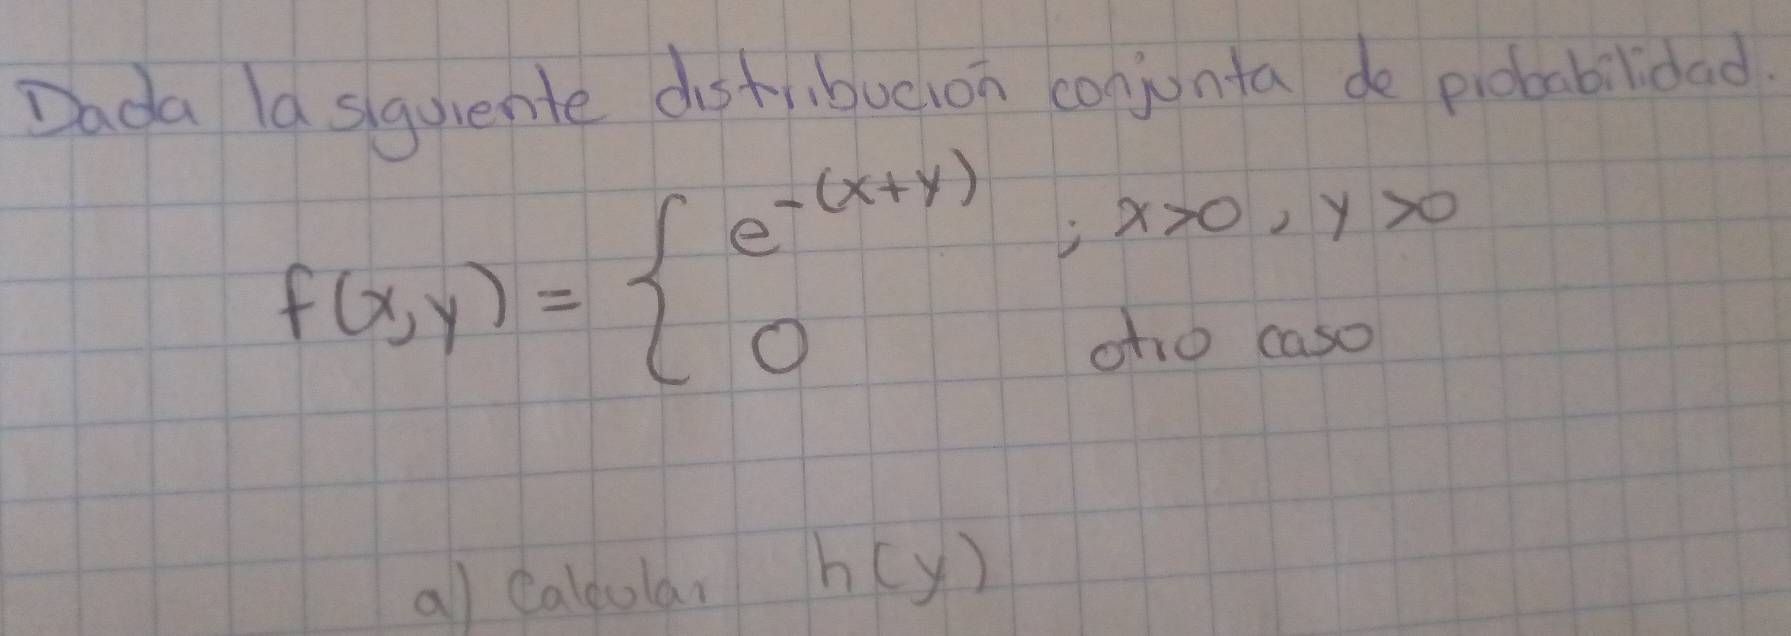 Dada la siguiente distribución conjunta de probabilidad.
f(x,y) = { e^-(x+y) ; x>0, y>0
0 otro caso
a) Calcular h(y)